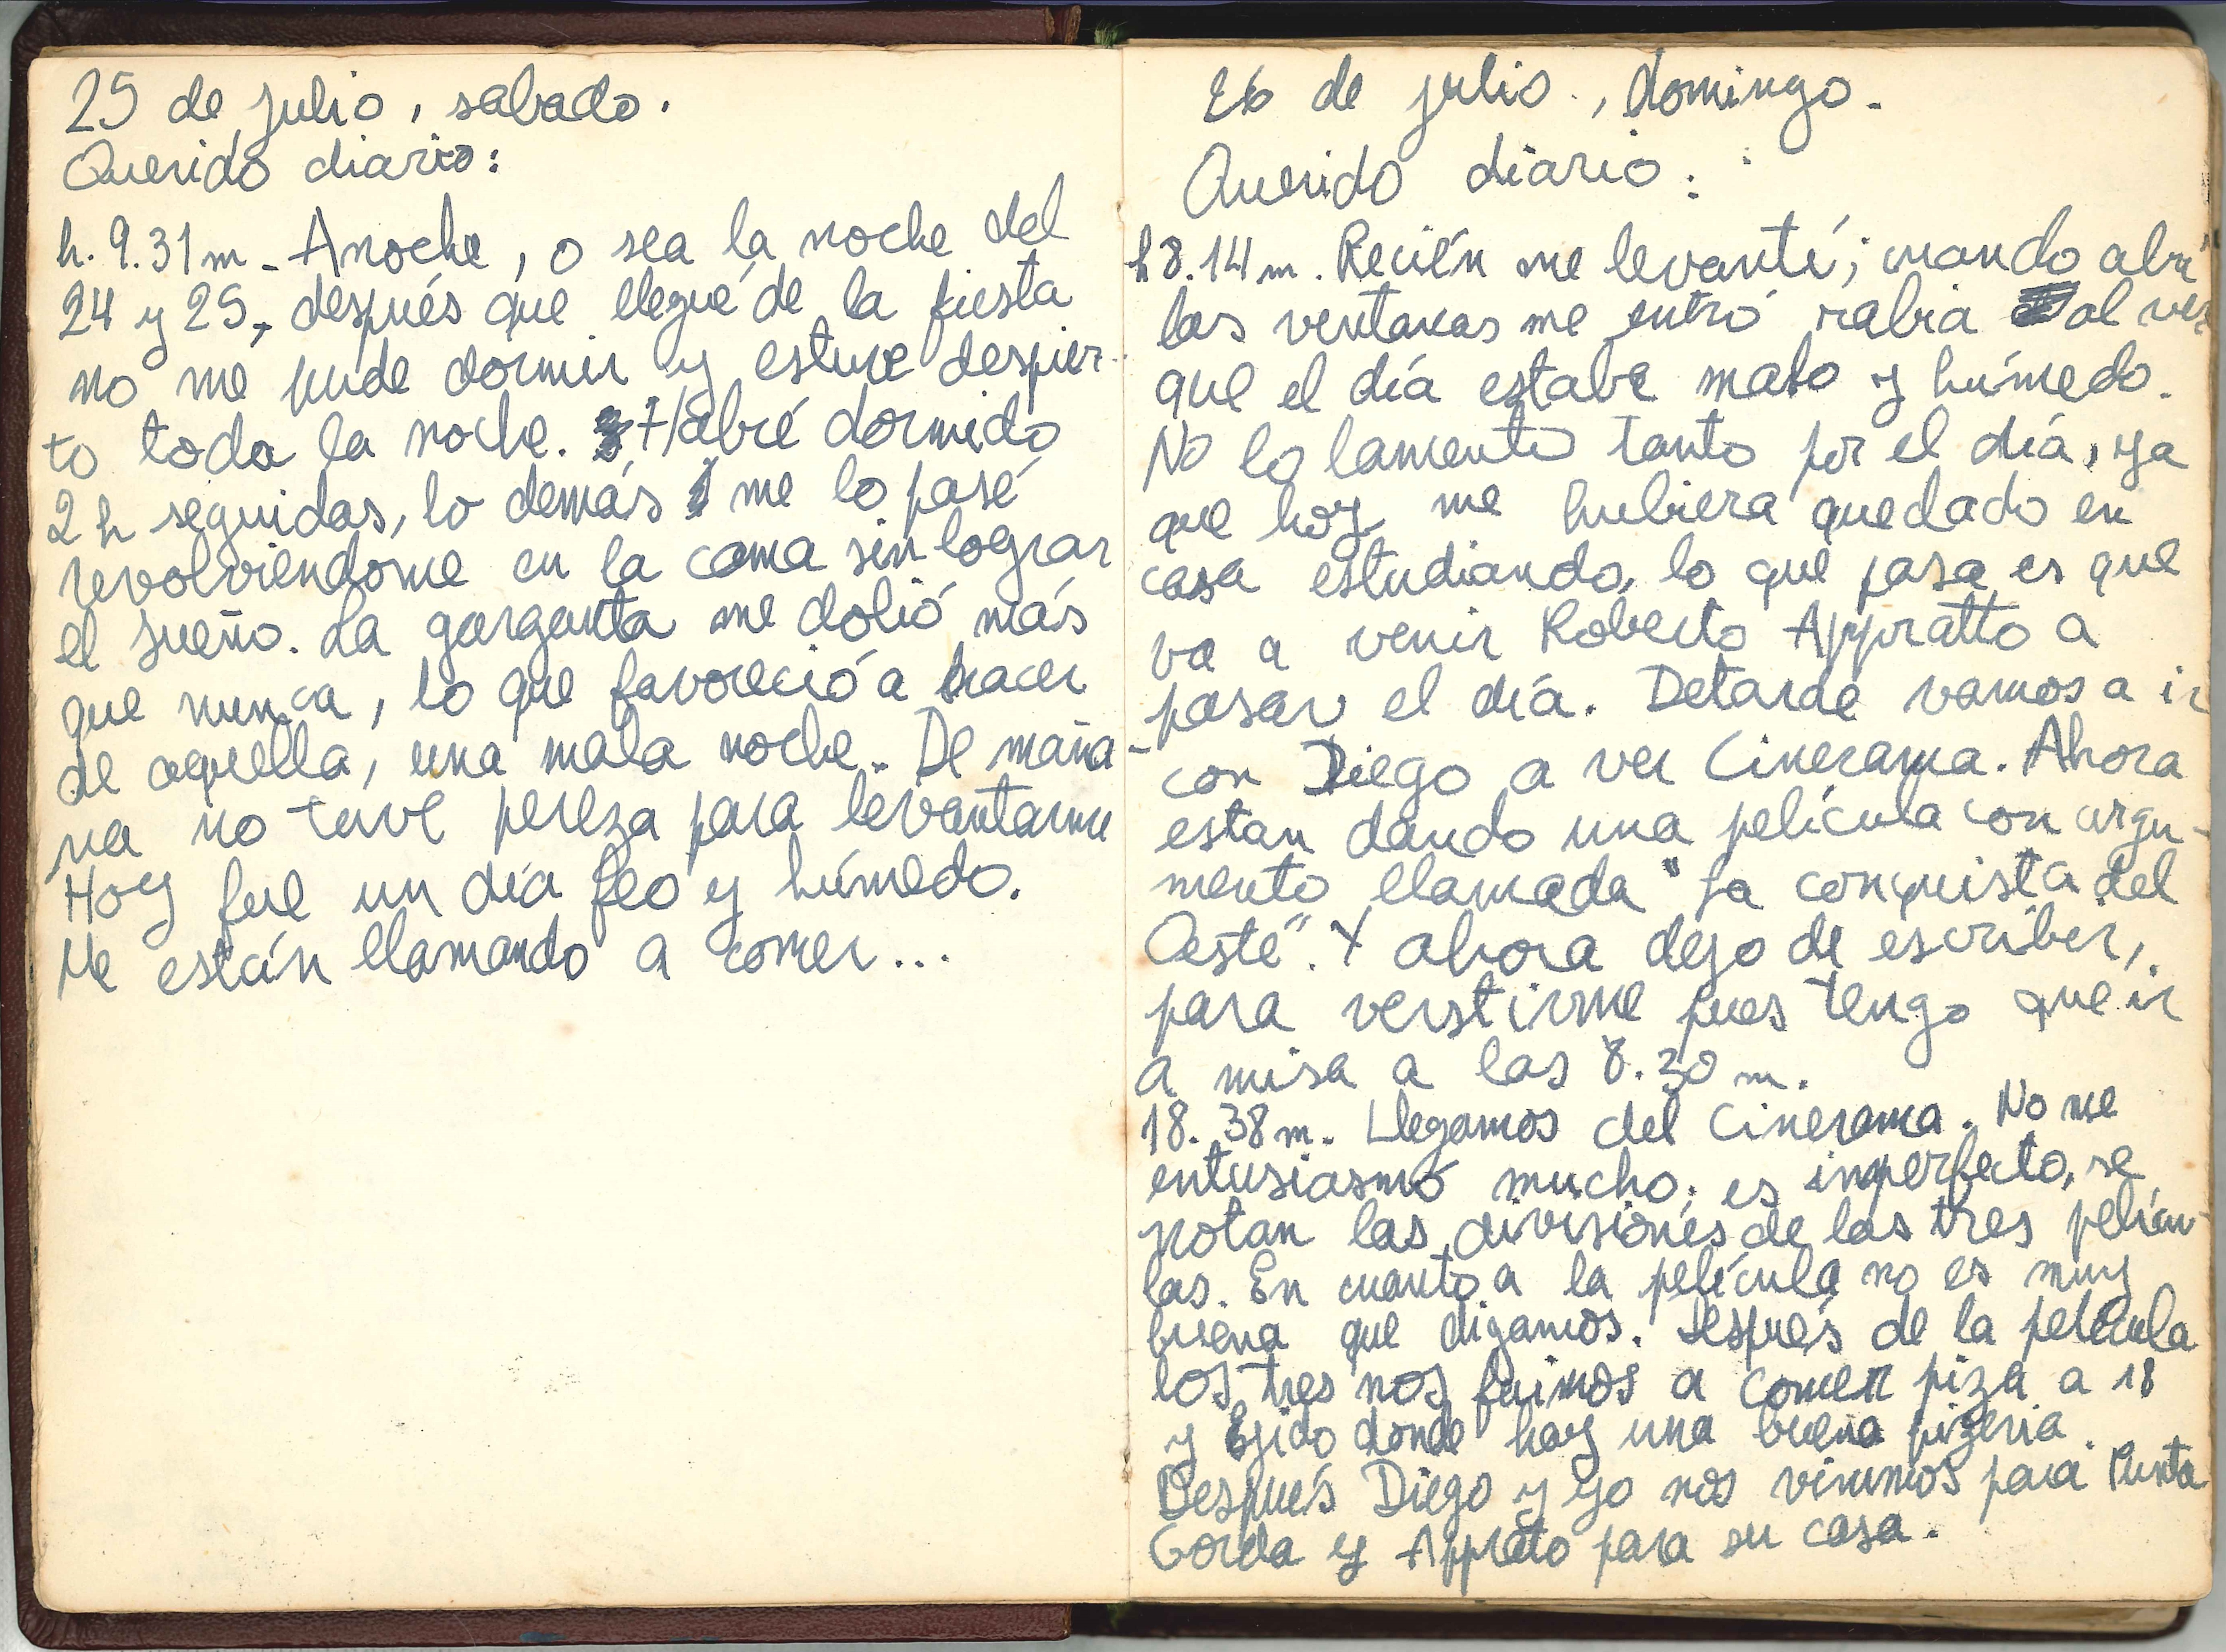 25 de julio, sabado.
Querido diario:
h. 9.31 m - Anoche, o sea la noche del
24 y 25, después que llegué de la fiesta
no me pude dormir y estuve despier-
to toda la noche. Habré dormido
2 h seguidas, lo demás me lo pasé
revolviendome en la cama sin lograr
el sueño. La garganta me dolió más
que nunca, lo que favoreció a hacer
de aquella, una mala noche. De maña-
na no tuve pereza para levantarme
Hoy fue un día feo y húmedo.
Me están llamando a comer...
26 de julio., domingo.
Querido diario:
h 8.14 m. Recién me levanté; cuando abrí
las ventanas me entró rabia al ver
que el día estaba malo y húmedo.
No lo lamento tanto por el día, ya
que hoy me hubiera quedado en
casa estudiando, lo que pasa es que
va a venir Roberto Appratto a
pasar el día. Detarde vamos a ir
con Diego a ver Cinerama. Ahora
estan dando una película con argu-
mento llamada "La conquista del
Oeste". Y ahora dejo de escriber,
para verstirme pues tengo que ir
a misa a las 8.30 m.
18.38 m. Llegamos del Cinerama. No me
entusiasmó mucho; es imperfecto, se
notan las divisiones de las tres pelícu-
las. En cuanto a la película no es muy
buena que digamos. Después de la película
los tres nos fuimos a comer piza a 18
y Ejido donde hay una buena pizeria.
Después Diego y yo nos vinimos para Punta
Gorda y Appratto para su casa.